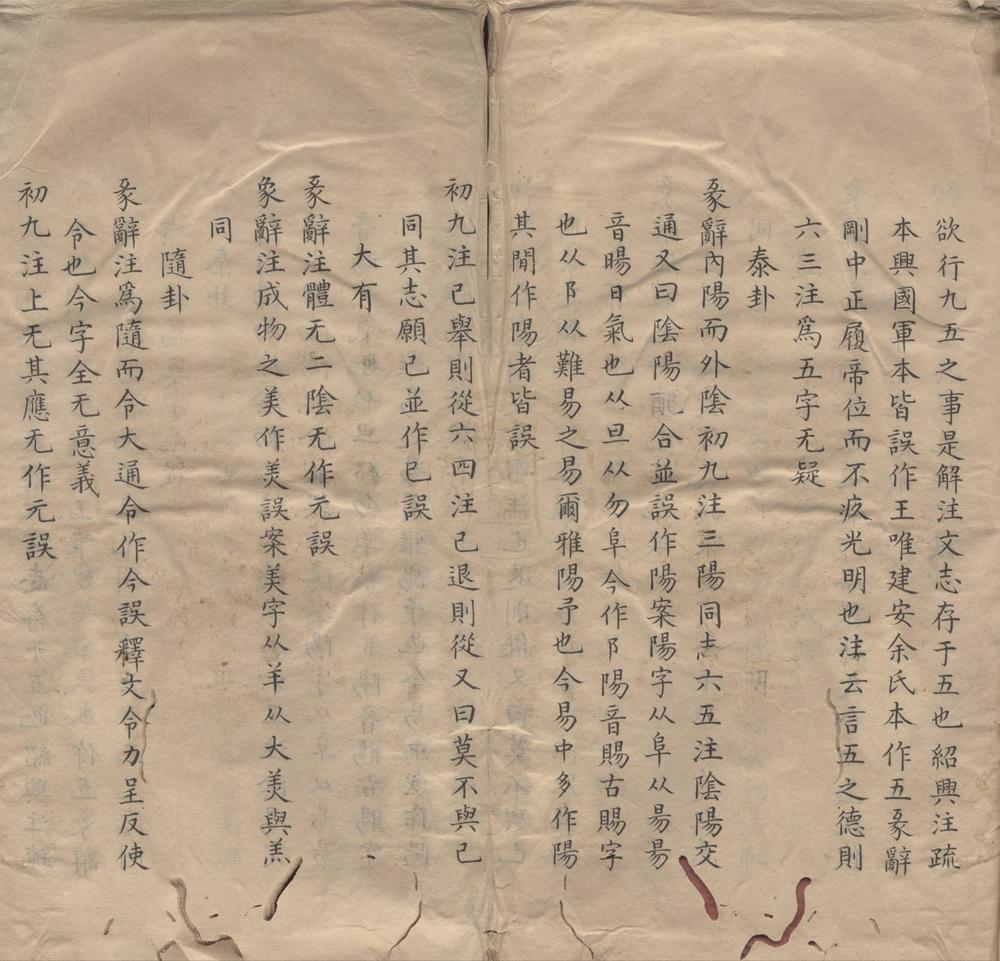 欲行九五之事是解注文志存于五也紹興注疏
本興國軍本皆誤作王唯建安余氏本作五彖辭
剛中正履帝位而不疚光明也注云言五之德則
六三注爲五字无疑
泰卦
彖辭內陽而外陰初九注三陽同志六五注陰陽交
通又曰陰陽配合並誤作陽案陽字从阜从昜昜
音暘日氣也从旦从勿阜今作阝陽音賜古賜字
也从从阝从難易之易爾雅陽予也今易中多作陽
其閒作陽者皆誤
初九注己舉則從六四注己退則從又曰莫不與己
同其志願己並作巳誤
大有
彖辭注體无二陰无作元誤
象辭注成物之美作羙誤案美字从羊从大羙與羔
同
隨卦
彖辭注爲隨而令大通令作今誤釋文令力呈反使
令也今字全无意義
初九注上无其應无作元誤